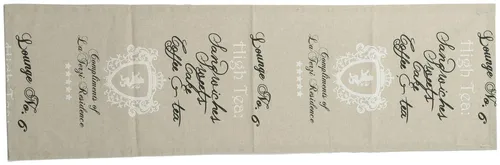 Lounge No. 6
High Tea:
Sandwiches
Sweets
Cake
Coffee & tea
Compliments of
La Raidence
Lounge No. 6
High Tea:
Sandwiches
Sweets
Cake
Coffee & tea
Compliments of
La Raidence
Lounge No. 6